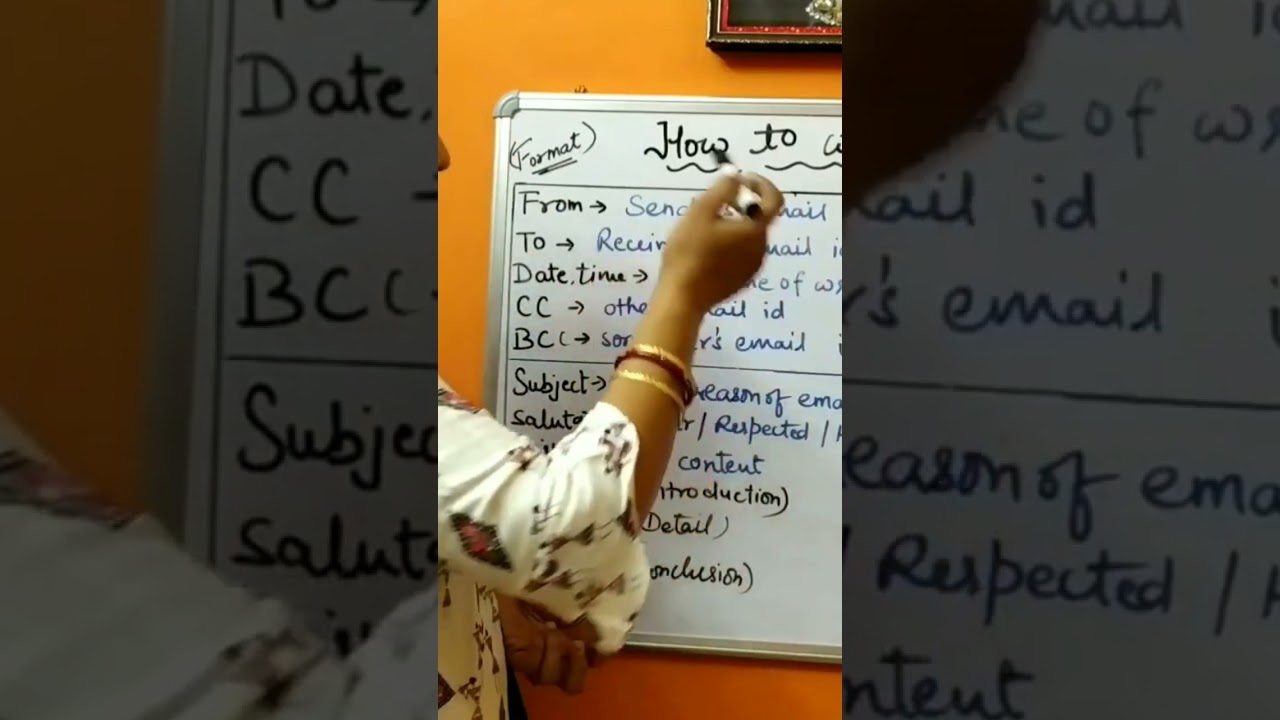 (Format) How to
From → Send mail
To → Receiv mail id
Date, time → me of
CC → othe mail id
BCC → som r's email
Subject → reason of ema
Saluta r / Respected /
content
ntroduction)
Detail)
onclusion)